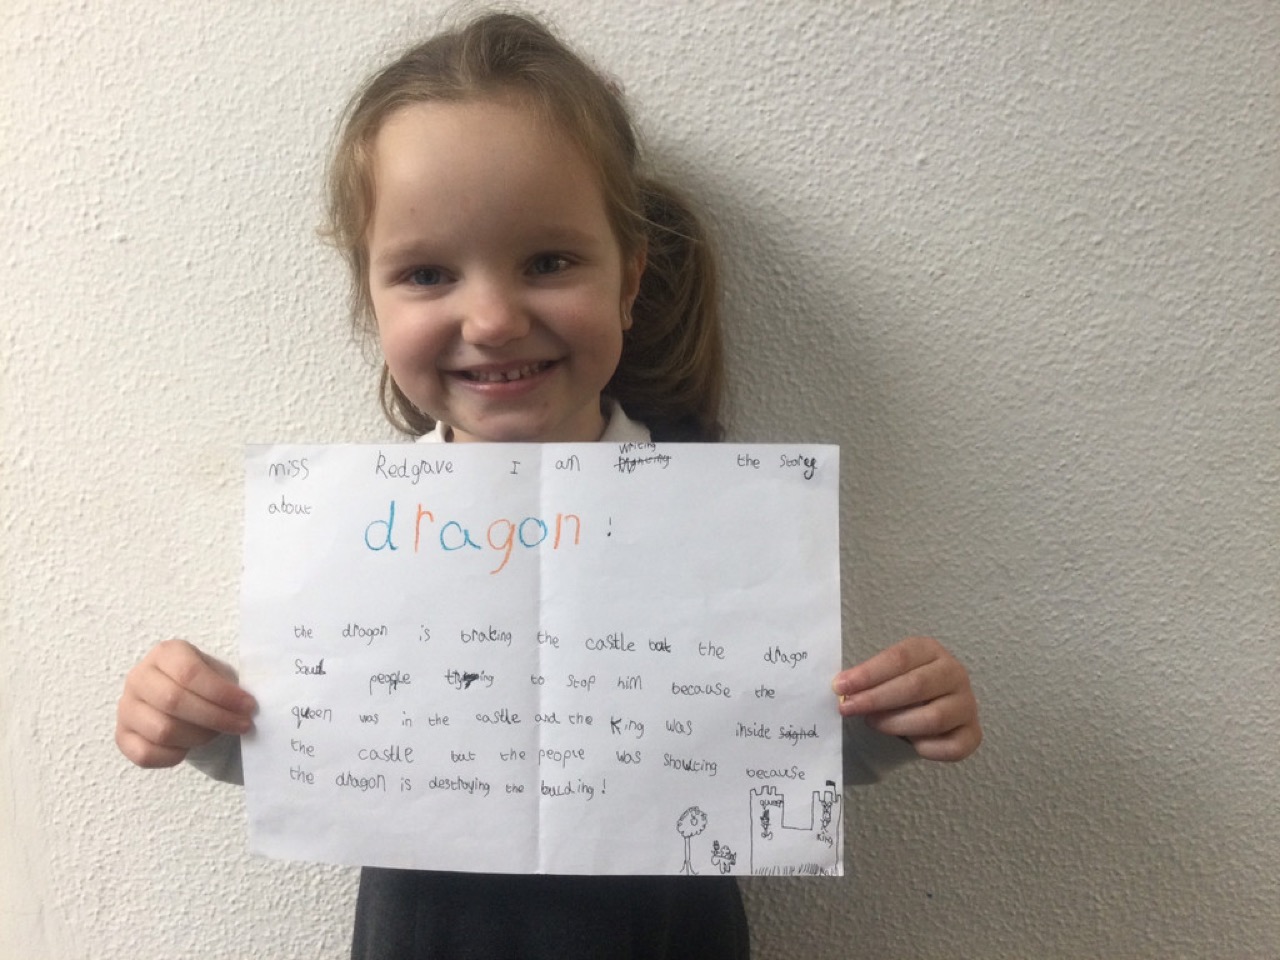 miss Redgrave I am writing the storey
about dragon!
the dragon is braking the castle but the dragon
Saw people trying to stop him because the
queen was in the castle and the King was inside
the castle but the people was shouting because
the dragon is destroying the bulding!
queen
King